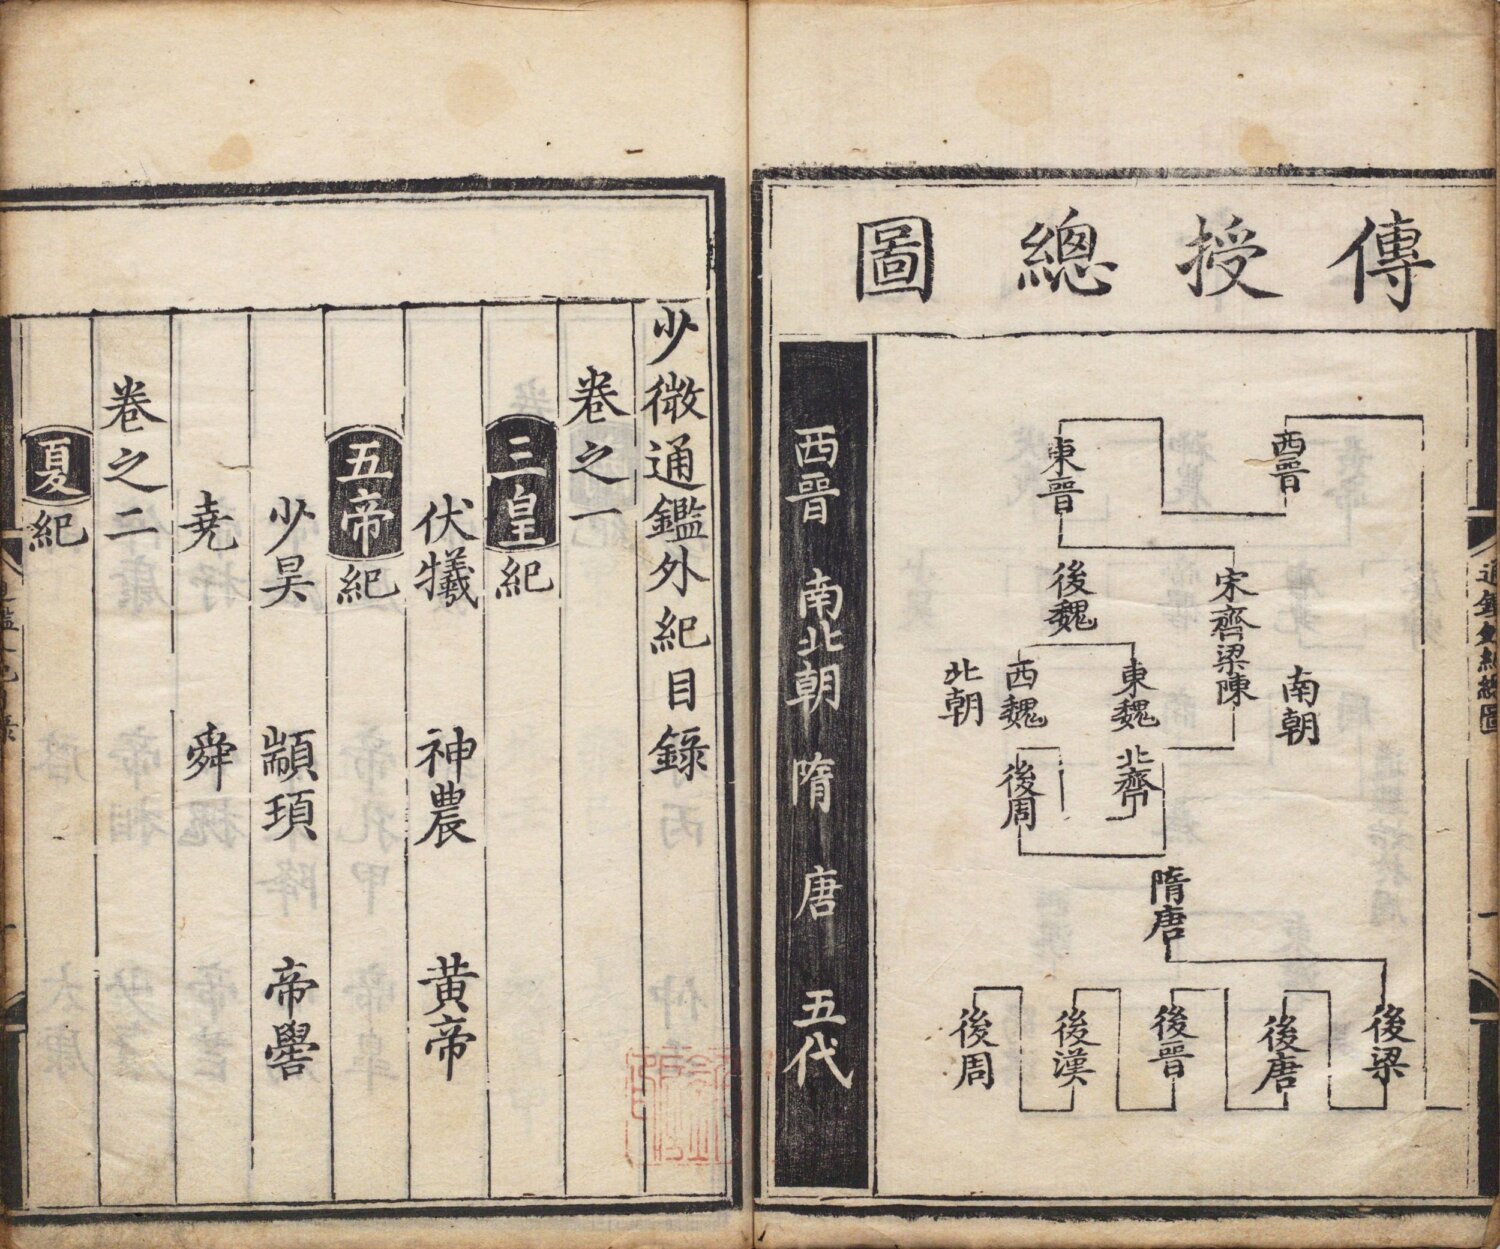 傳授總圖
西晉
東晉
宋齊梁陳
南朝
後魏
東魏
西魏
北朝
北齊
後周
隋唐
後梁
後唐
後晉
後漢
後周
西晉 南北朝 隋 唐 五代
少微通鑑外紀目錄
卷之一
三皇紀
伏犧 神農 黄帝
五帝紀
少昊 顓頊 帝嚳
堯 舜
卷之二
夏紀